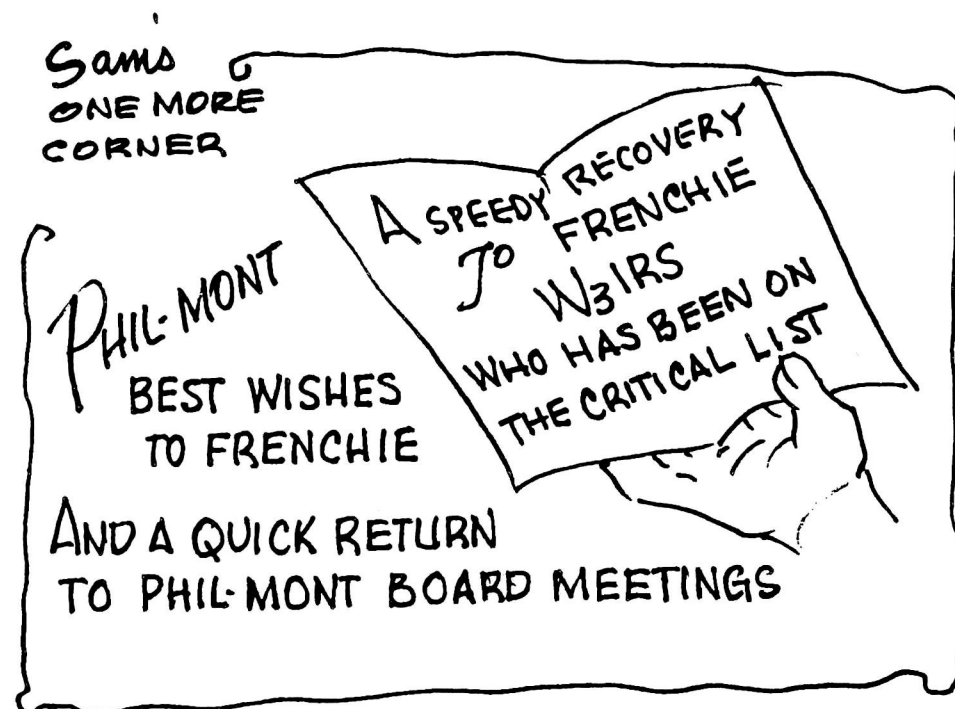 Sam's
ONE MORE
CORNER
A SPEEDY RECOVERY
TO FRENCHIE
W3IRS
WHO HAS BEEN ON
THE CRITICAL LIST
PHIL-MONT
BEST WISHES
TO FRENCHIE
AND A QUICK RETURN
TO PHIL-MONT BOARD MEETINGS